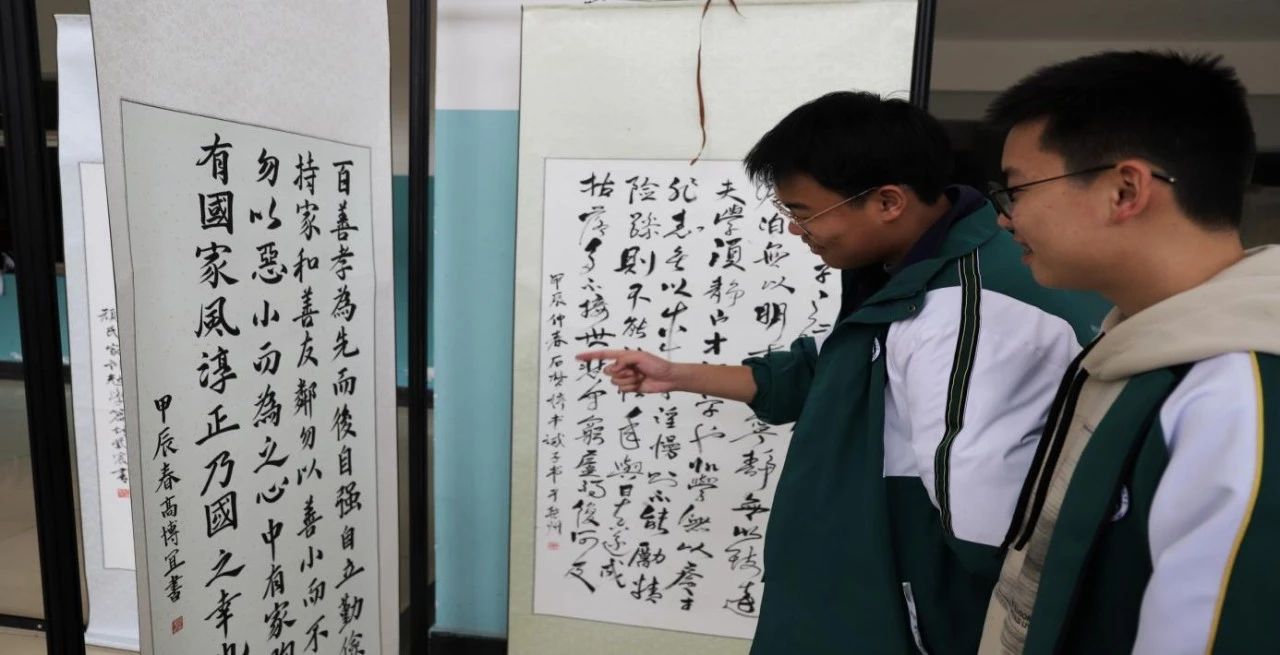 百善孝為先而後自强自立勤儉
持家和善友鄰勿以善小而不
勿以惡小而為之心中有家
有國家風淳正乃國之幸
甲辰春高博宜書
泊無以明寧靜無以致遠
夫學須靜也才學也非學無以廣才
非志無以成慢則不能勵精
險躁則不能年與日去遂成
枯落多不接世悲守窮廬將復何及
甲辰仲春石書誡子書於州
氏家書